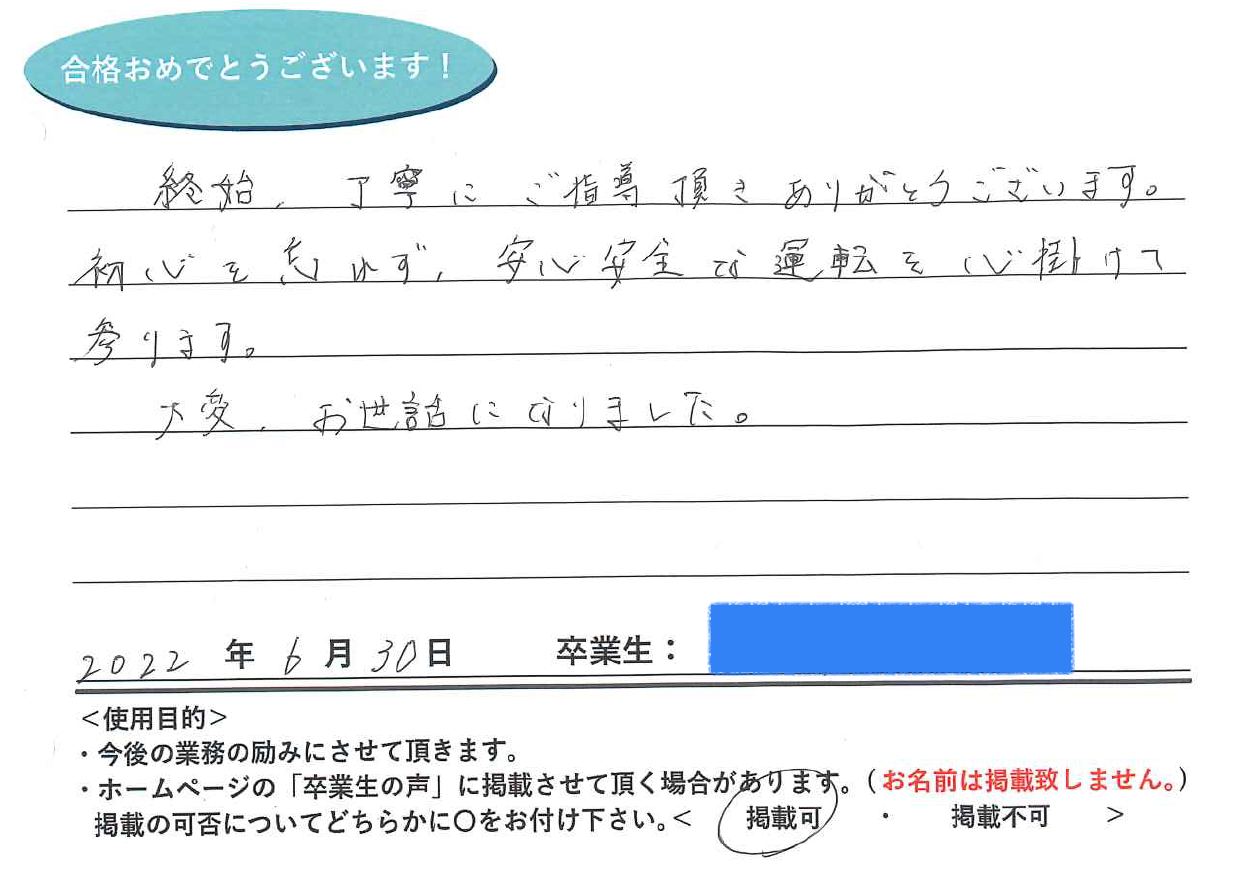 合格おめでとうございます！
終始、丁寧にご指導頂きありがとうございます。
初心を忘れず、安心安全な運転を心掛けて
参ります。
大変、お世話になりました。
2022年6月30日 卒業生：
＜使用目的＞
・今後の業務の励みにさせて頂きます。
・ホームページの「卒業生の声」に掲載させて頂く場合があります。（お名前は掲載致しません。）
掲載の可否についてどちらかに〇をお付け下さい。＜ 掲載可 ・ 掲載不可 ＞